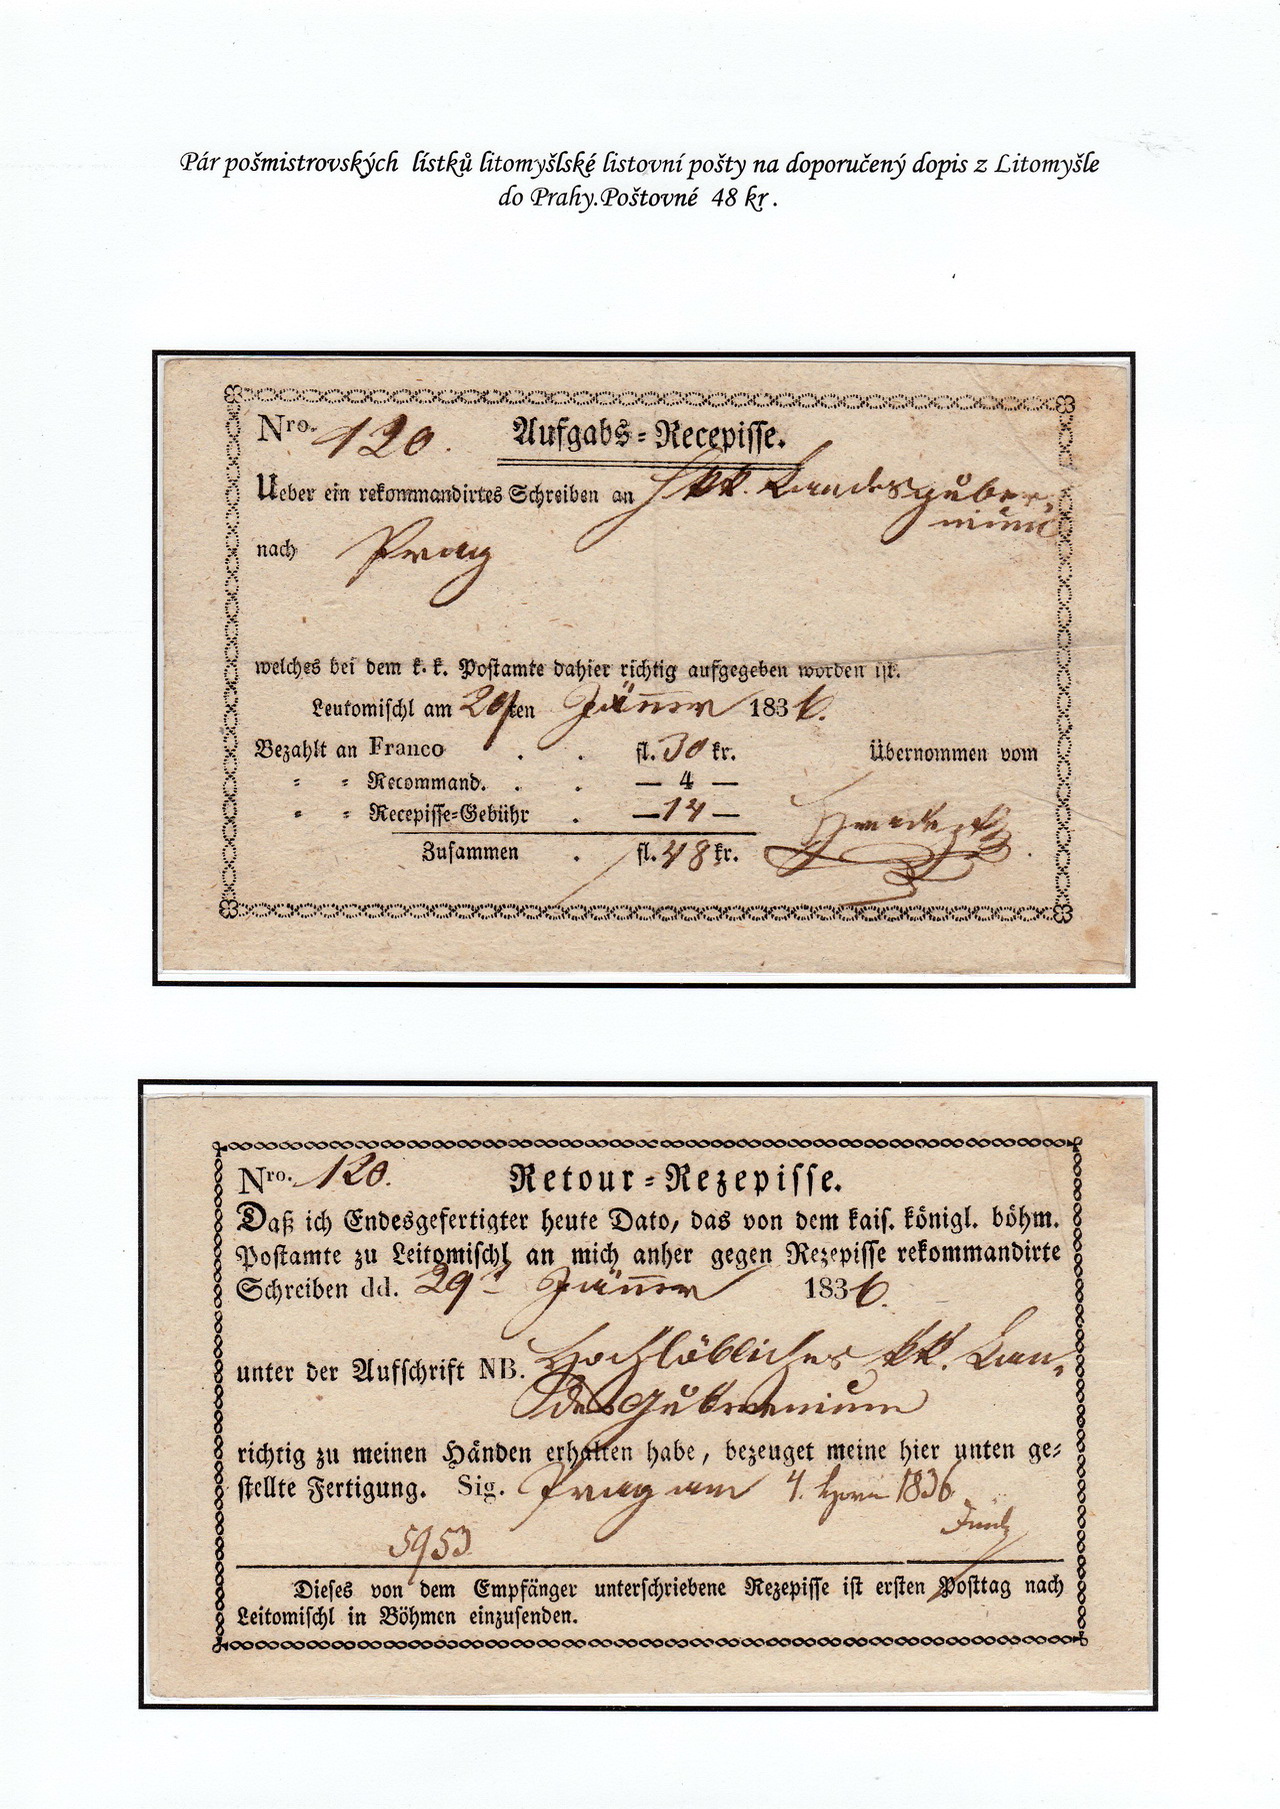 Pár pošmistrovských lístků litomyšlské listovní pošty na doporučený dopis z Litomyšle
do Prahy.Poštovné 48 kr .
Nro. 120. Aufgabs=Recepisse.
Ueber ein rekommandirtes Schreiben an kk. Landesguber-
nium
nach Prag
welches bei dem k. k. Postamte dahier richtig aufgegeben worden ist.
Leutomischl am 29ten Jänner 1836.
Bezahlt an Franco . . fl. 30 kr. Übernommen vom
" " Recommand. . . — 4 —
" " Recepisse=Gebühr . — 14 —
Zusammen . fl. 48 kr.
Nro. 120. Retour=Rezepisse.
Daß ich Endesgefertigter heute Dato, das von dem kais. königl. böhm.
Postamte zu Leitomischl an mich anher gegen Rezepisse rekommandirte
Schreiben dd. 29t Jänner 1836.
unter der Aufschrift NB. Hochlöbliches kk. Lan-
des Gubernium
richtig zu meinen Händen erhalten habe, bezeuget meine hier unten ge=
stellte Fertigung. Sig. Prag am 4. 1836
5953
Dieses von dem Empfänger unterschriebene Rezepisse ist ersten Posttag nach
Leitomischl in Böhmen einzusenden.